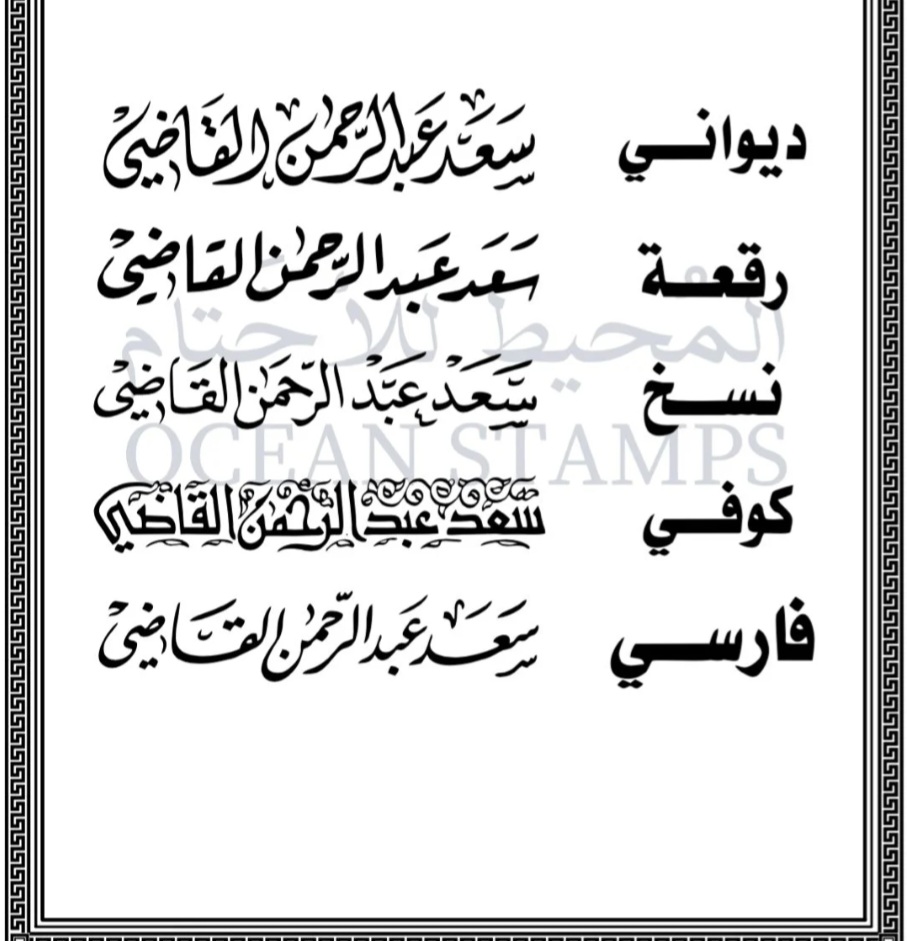 ديواني سعد عبدالرحمن القاضي
رقعة سعد عبدالرحمن القاضي
المحيط للأختام
نسخ سعد عبدالرحمن القاضي
OCEAN STAMPS
كوفي سعد عبدالرحمن القاضي
فارسي سعد عبدالرحمن القاضي